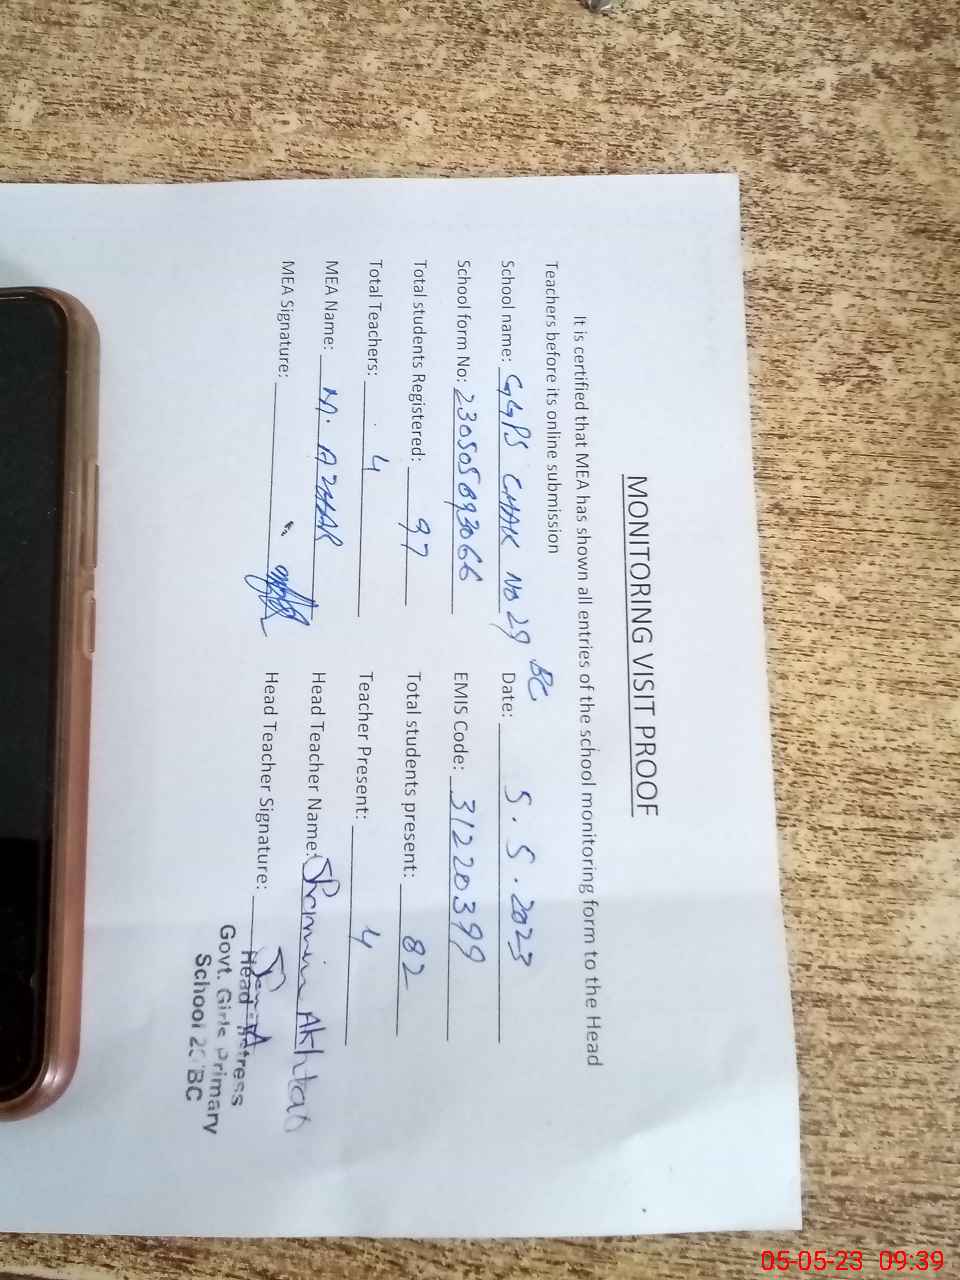 MONITORING VISIT PROOF
It is certified that MEA has shown all entries of the school monitoring form to the Head
Teachers before its online submission
School name: GGPS CHAK No 29 BC Date: 5.5.2023
School form No: 230505893066 EMIS Code: 31220399
Total students Registered: 97 Total students present: 82
Total Teachers: 4 Teacher Present: 4
MEA Name: M. AZHAR Head Teacher Name: Akhtar
MEA Signature: Head Teacher Signature:
Head
Govt. Girls Primary
School BC
05-05-23 09:39